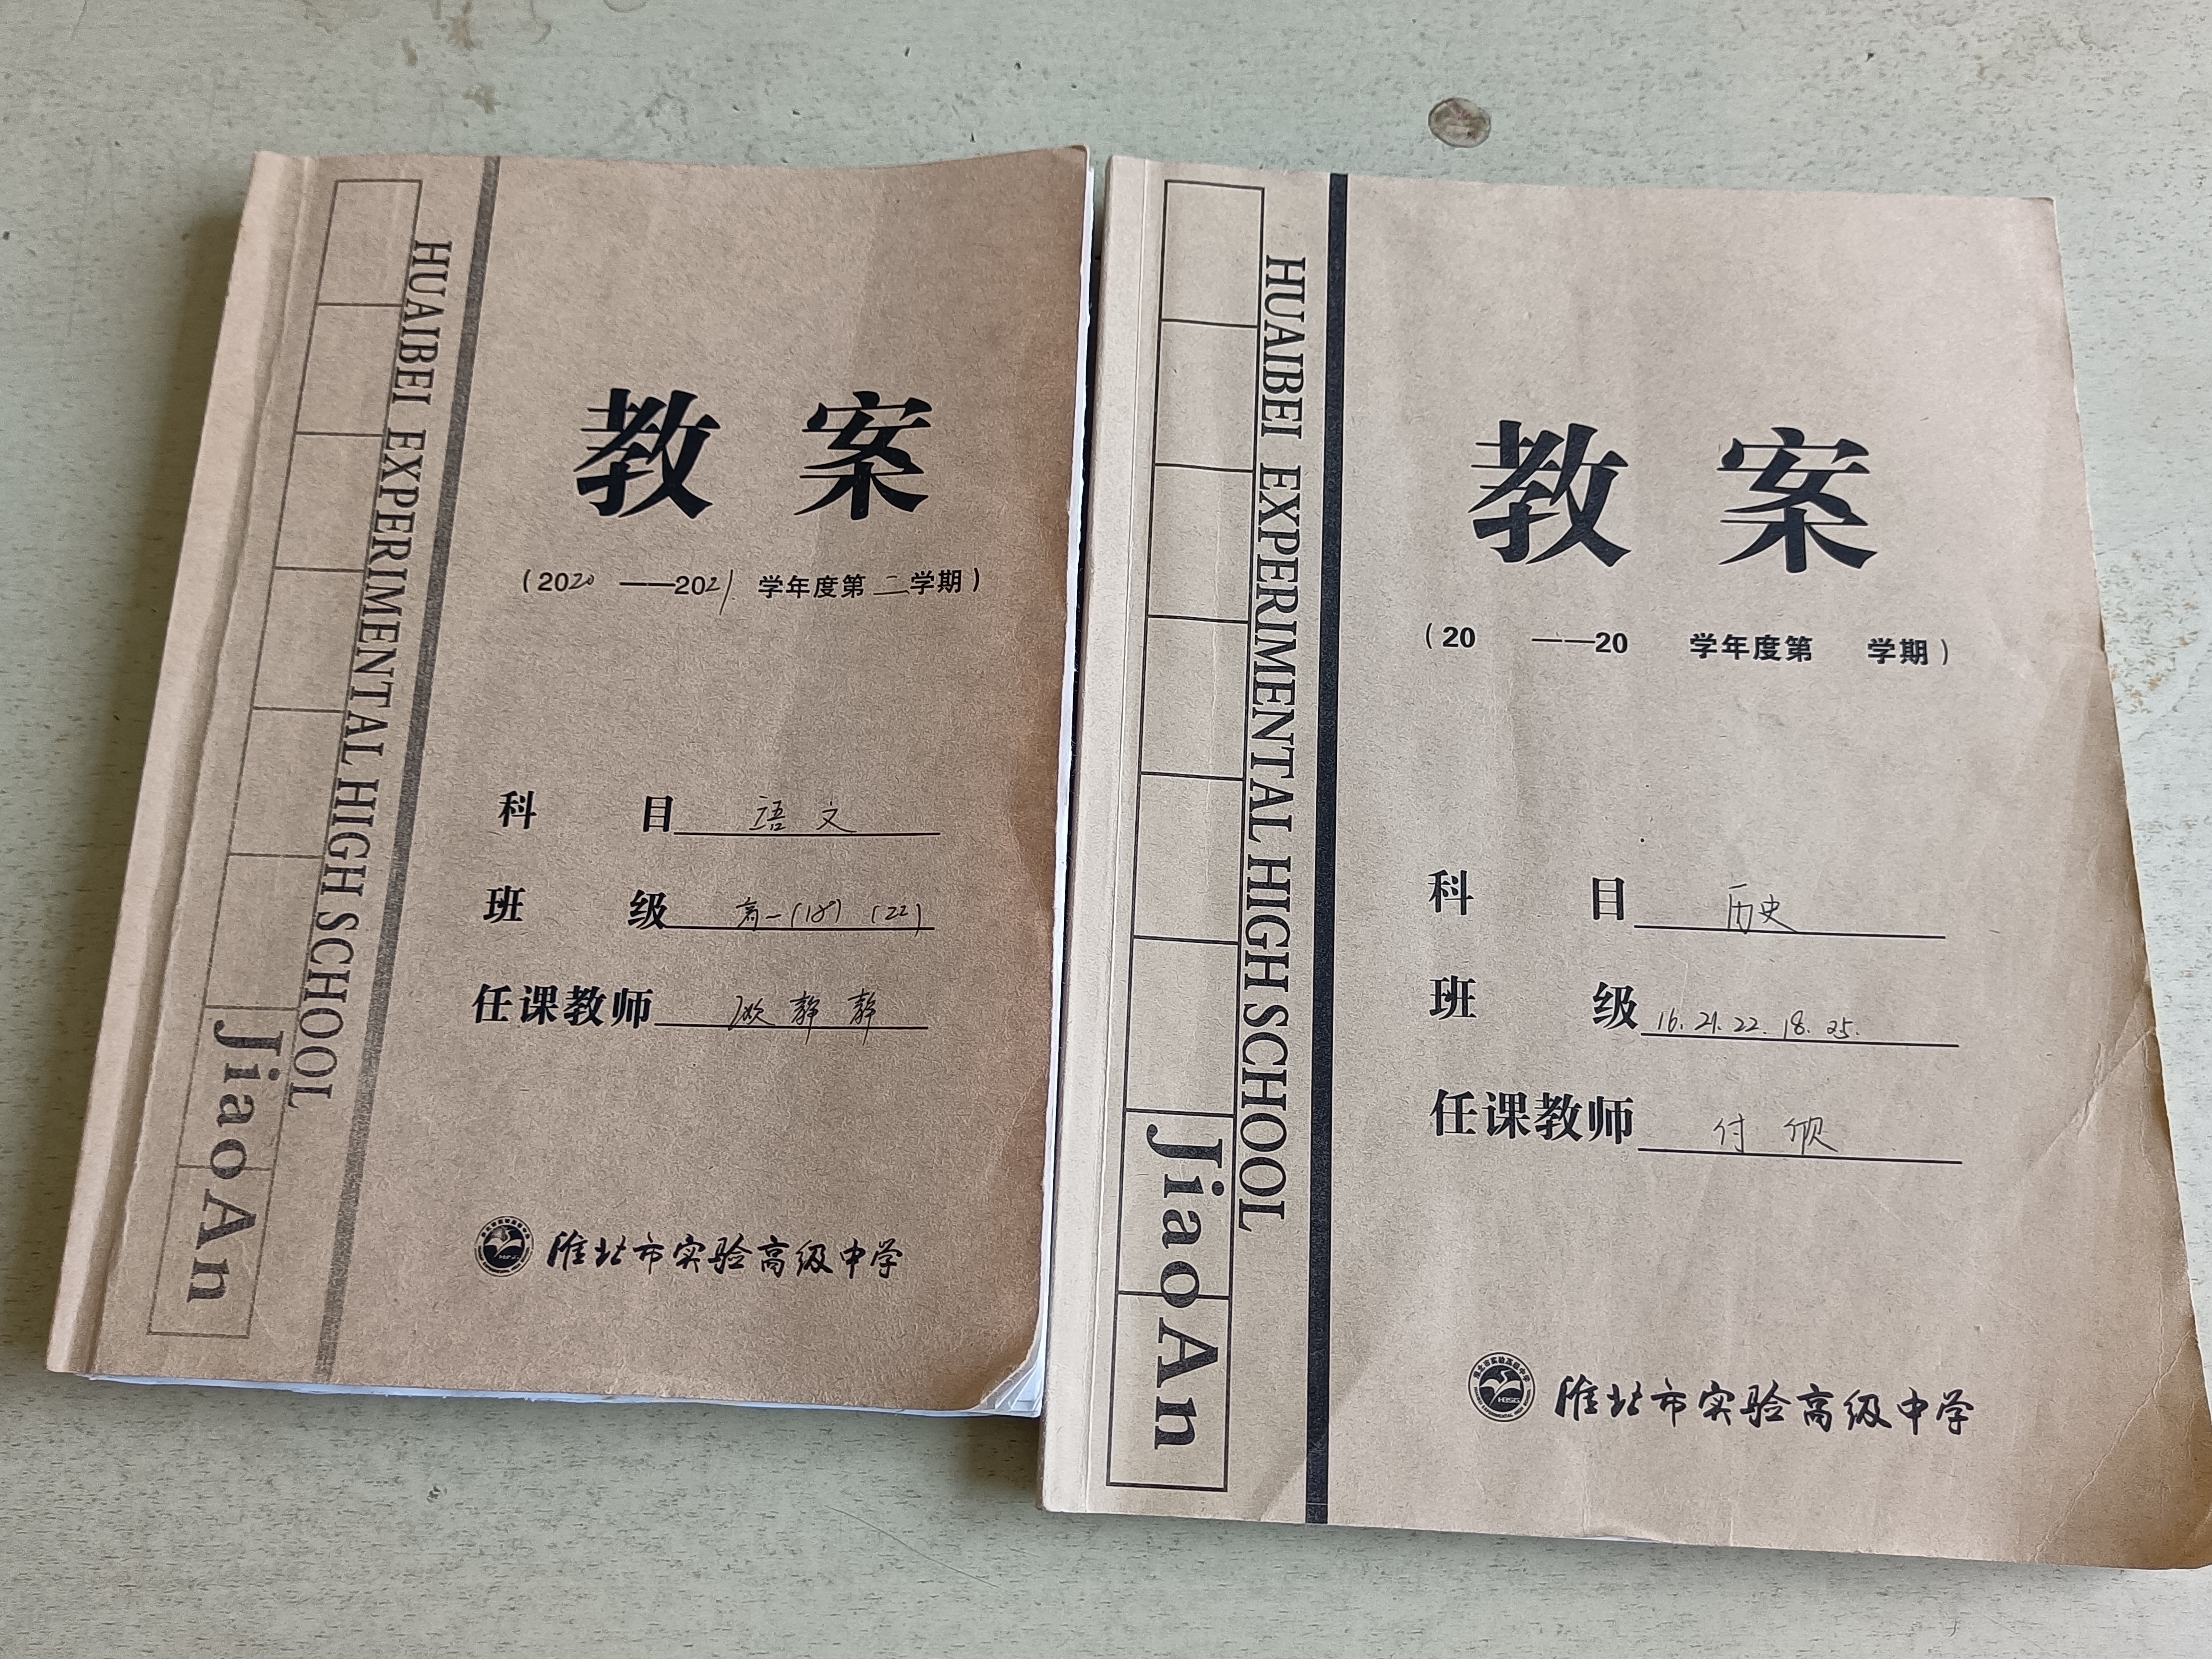 HUAIBEI EXPERIMENTAL HIGH SCHOOL
JiaoAn
教案
(2020 ——2021 学年度第二学期)
科目 语文
班级 高一(18) (22)
任课教师 静静
淮北市实验高级中学
HUAIBEI EXPERIMENTAL HIGH SCHOOL
JiaoAn
教案
(20 ——20 学年度第 学期)
科目 历史
班级 16. 21. 22. 18. 25.
任课教师 付
淮北市实验高级中学